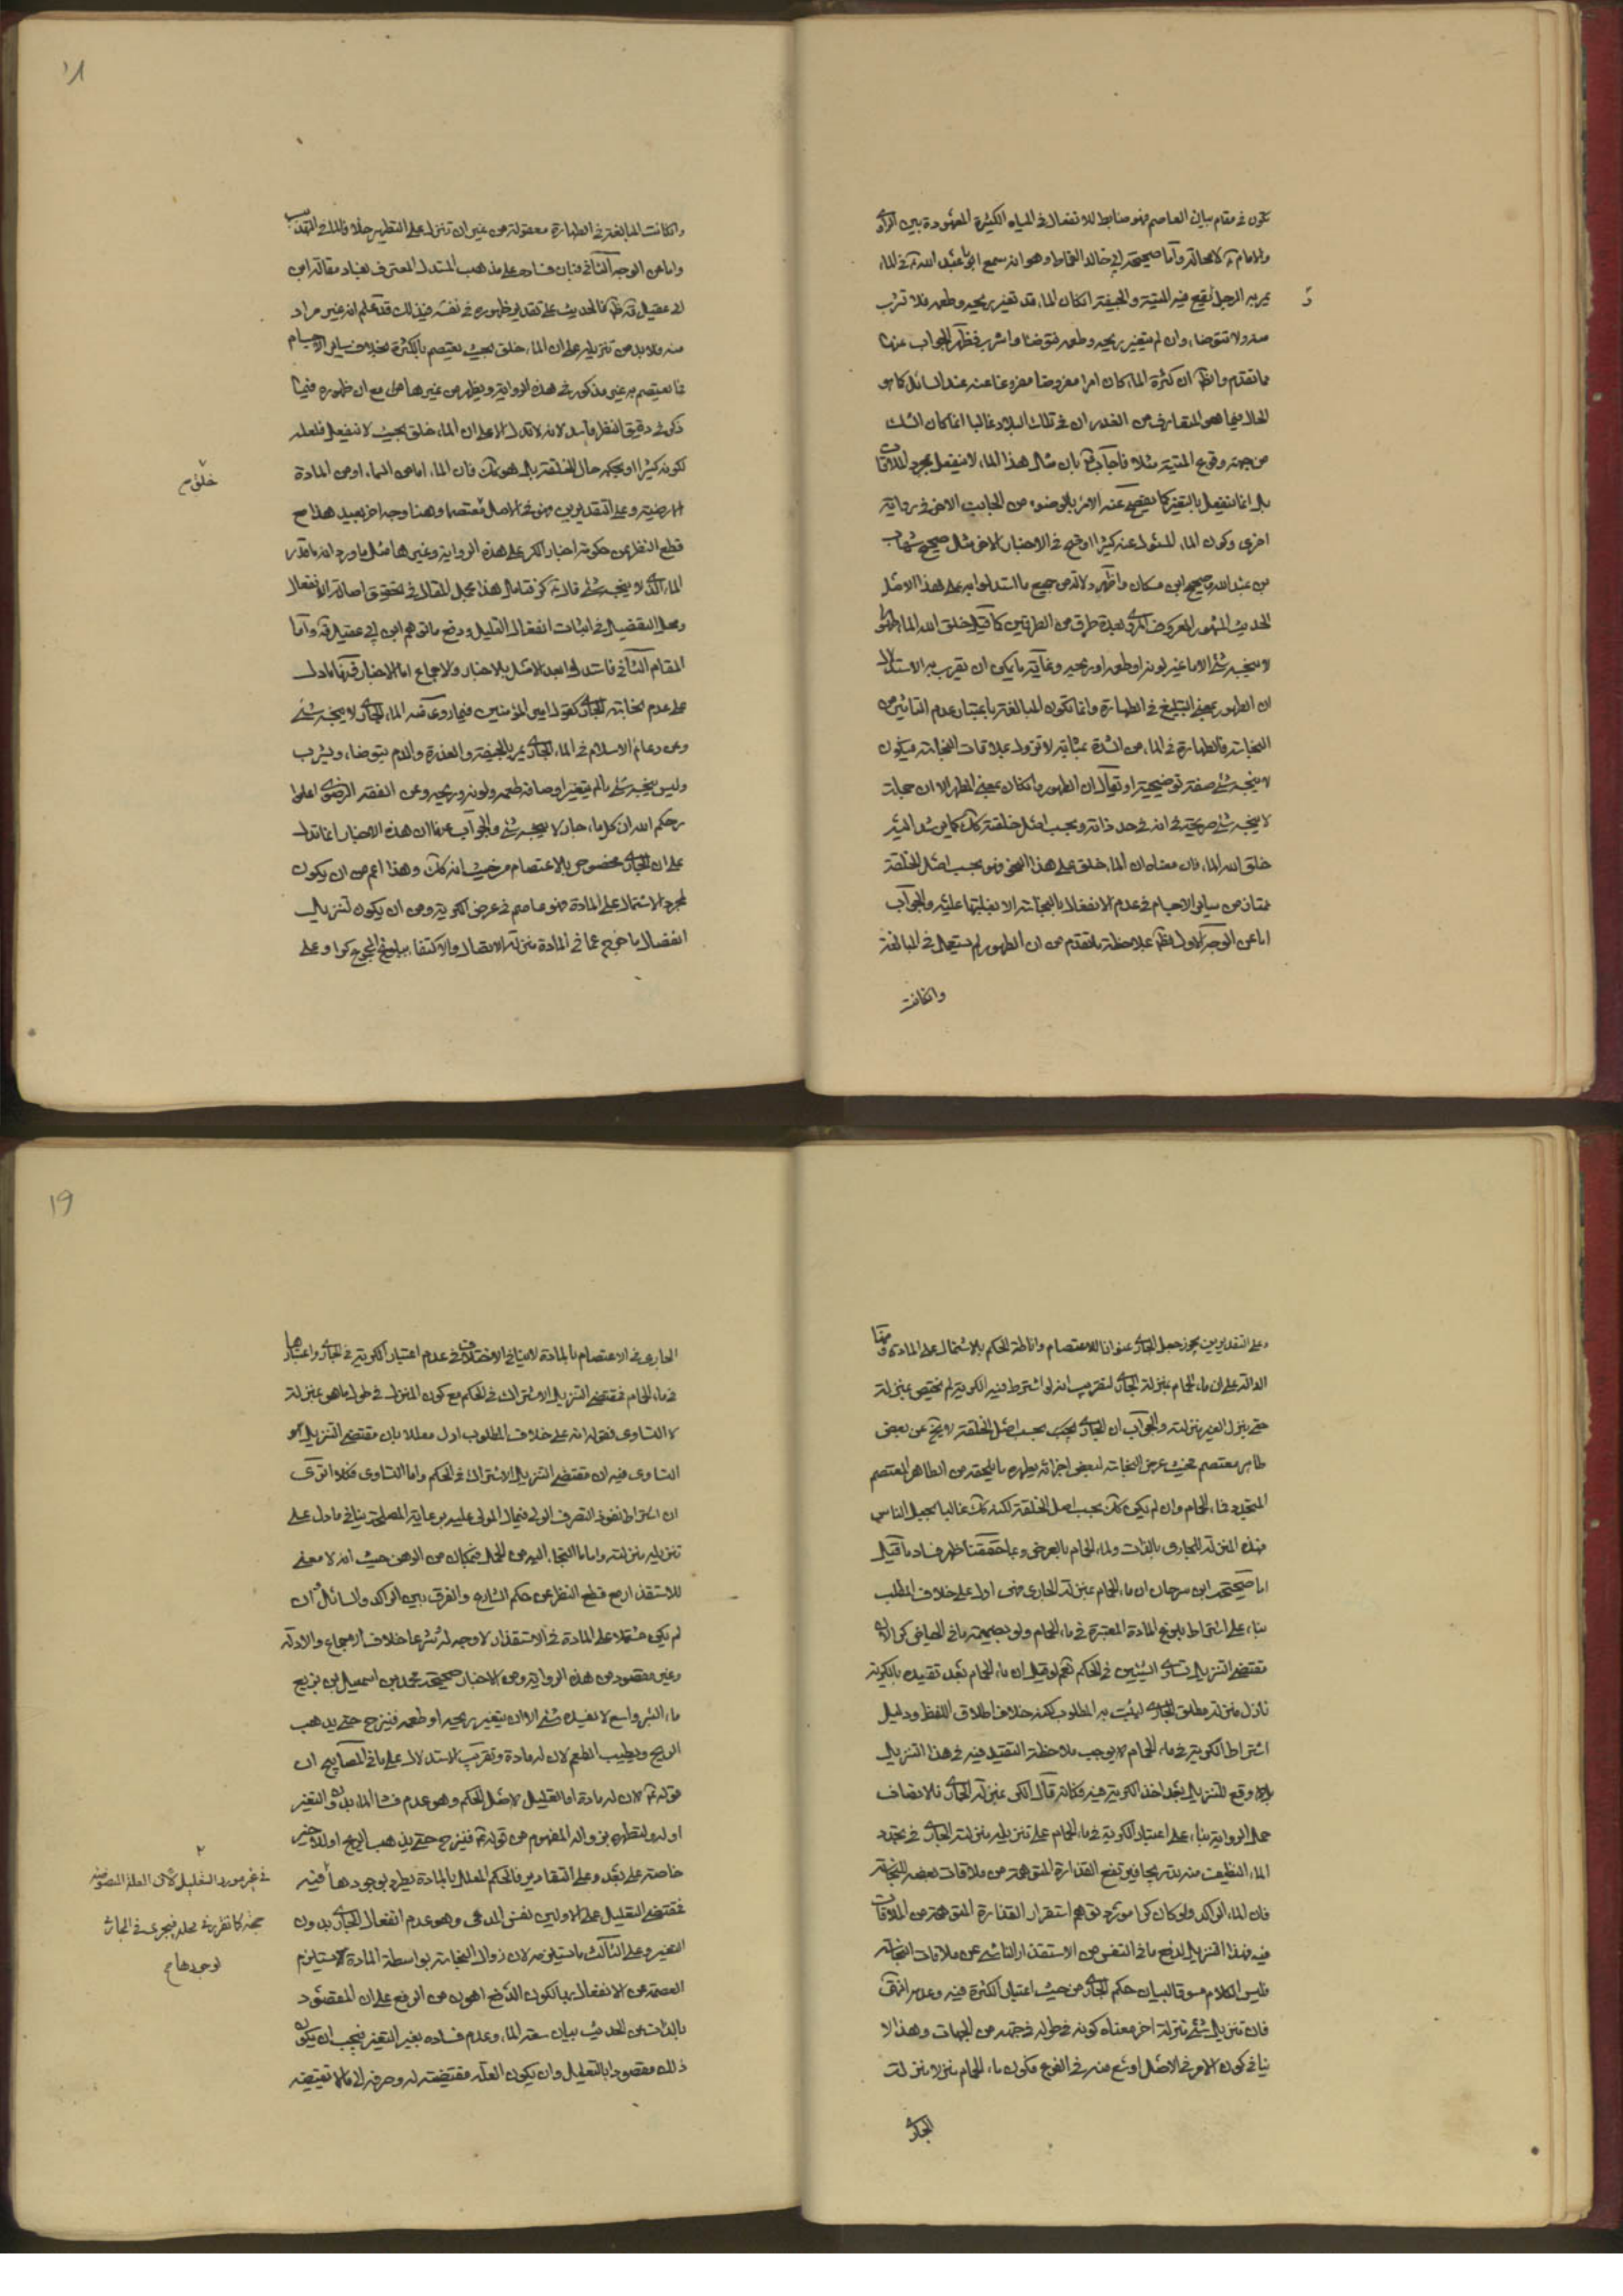 تكون في مقام بيان العاصم فهو ضابط للانفعال في المياه الكثيرة المعهودة بين الراوي
والامام ع لا محالة واما صحيحة ابي خالد القماط وهو انه سمع ابا عبد الله ع في الماء
يمر به الرجل نقيع فيه الميتة والجيفة ان كان الماء قد تغير ريحه وطعمه فلا تشرب
منه ولا تتوضا وان لم يتغير ريحه وطعمه فتوضا واشرب فظهر الجواب عنها
مما تقدم واظهر ان كثرة الماء كان امرا مفروضا مفروغا عنه عند السائل كما هو
الحال فيما هو المتعارف من الغدران في تلك البلاد غالبا انما كان الشك
من جهة وقوع الميتة مثلا فاجاب ع بان مثل هذا الماء لا ينفعل بمجرد الملاقات
بل انما ينفعل بالتغير كما يفصح عنه الامر بالوضوء من الجانب الاخر في رواية
اخرى وكون الماء المسئول عنه كثيرا اوضح في الاخبار الاخر مثل صحيح شهاب
بن عبد الله وصحيح ابن مسكان واظهر دلالة من جميع ما استدلوا به على هذا الاصل
الحديث المشهور المعروف المروي بعدة طرق من الطرفين كما قيل خلق الله الماء طهورا
لا ينجسه شئ الا ما غير لونه او طعمه او ريحه وغاية ما يمكن ان يقرب به الاستدلال
ان الطهور بمعنى البليغ في الطهارة وانما تكون المبالغة باعتبار عدم التاثير من
النجاسة فالطهارة في الماء من الشدة بمثابة لا تزول بملاقات النجاسة فيكون
لا ينجسه شئ صفة توضيحية او يقال ان الطهور وان كان بمعنى المطهر الا ان جملة
لا ينجسه شئ صريحة في انه في حد ذاته وبحسب اصل خلقته كك كما يرشد اليه
خلق الله الماء فان معناه ان الماء خلق على هذا النحو فهو بحسب اصل الخلقة
ممتاز من سائر الاجسام في عدم الانفعال بالنجاسة الا بغلبتها عليه والجواب
اما عن الوجه الاول فظهر بملاحظة ما تقدم من ان الطهور لم يستعمل في المبالغة
وان كانت
١٨
وان كانت المبالغة في الطهارة معقولة من غير ان تنزل على التطهير خلافا لما في التهذيب
واما عن الوجه الثاني فبان فساده على مذهب المستدل المعترف بفساد مقالة ابن
ابي عقيل قده ظ فالحديث على تقدير ظهوره في نفسه في ذلك قد علم انه غير مراد
منه فلا بد من تنزيله على ان الماء خلق بحيث يعتصم بالكثرة بخلاف سائر الاجسام
فما يعتصم به غير مذكور في هذه الرواية ويظهر من غيرها هل مع ان ظهوره فيما
ذكر في دقيق النظر فاسد لانه لا تدل الا على ان الماء خلق بحيث لا ينفعل فلعله
لكونه كثيرا او بحكمه حال الخلقة بل هو كك فان الماء اما من السماء او من المادة
خلق م
الارضية وعلى التقديرين فهو في الاصل معتصم وهنا وجه اخر بعيد هذا مع
قطع النظر عن حكومة اخبار الكر على هذه الرواية وغيرها مثل ما ورد انه ما قدر
الماء الذي لا ينجسه شئ قال ع كر فتامل هذا مجمل المقال في تحقيق اصالة الانفعال
ومحل التفضيل في اثبات انفعال القليل ودفع ما توهم ابن ابي عقيل قده واما
المقام الثاني فاستدل له بعد الاصل بالاخبار والاجماع اما الاخبار فمنها ما دل
على عدم نجاسة الجاري كقول امير المؤمنين فيما روي عنه الماء الجاري لا ينجسه شئ
وعن دعائم الاسلام في الماء الجاري يمر بالجيفة والعذرة والدم يتوضا ويشرب
وليس ينجسه شئ ما لم يتغير اوصافه طعمه ولونه وريحه وعن الفقه الرضوي اعلموا
رحمكم الله ان كل ماء جار لا ينجسه شئ والجواب عنها ان هذه الاخبار انما تدل
على ان الجاري مخصوص بالاعتصام من حيث انه كك وهذا اعم من ان يكون
لمجرد الاشتمال على المادة فهو عاصم في عرض الكرية ومن ان يكون لتنزيل
انفصال ما خرج عما في المادة منزلة الاتصال والاكتفاء ببلوغ المجموع كرا وعلى
وعلى التقديرين يجوز جعل الجاري عنوانا للاعتصام واناطة الحكم بالاشتمال على المادة ومنها
الدالة على ان ماء الحمام بمنزلة الجاري لتقريب انه لو اشترط فيه الكرية لم يختص بمنزلة
حتى ينزل الغير منزلته والجواب ان الجاري بحسب اصل الخلقة لا يخ عن بعض
طاهر معتصم بحيث عرض النجاسة لبعض اجزائه يطهره ما يلحقه من الطاهر المعتصم
المتجدد فماء الحمام وان لم يكن كك بحسب اصل الخلقة لكنه كك غالبا بجعل الناس
فهذه المنزلة للجاري بالذات ولماء الحمام بالعرض وبما حققنا ظهر فساد ما قيل
اما صحيحة ابن سرحان ان ماء الحمام بمنزلة الجاري فهي ادل على خلاف المطلب
بناء على اشتراط بلوغ المادة المعتبرة في ماء الحمام ولو بضميمة ما في الحياض كرا لان
مقتضى التنزيل تساوي الشيئين في الحكم نعم لو قيل ان ماء الحمام بعد تقييده بالكرية
نازل منزلة مطلق الجاري ليثبت به المطلوب لكنه خلاف اطلاق اللفظ ودليل
اشتراط الكرية في ماء الحمام لا يوجب ملاحظة التقييد فيه في هذا التنزيل
وقع التنزيل بعد اخذ الكرية فيه فكانه قال الكر بمنزلة الجاري فالانصاف
حمل الرواية بناء على اعتبار الكرية في ماء الحمام على تنزيله منزلة الجاري في تجدد
الماء النظيف منه تدريجا فيرتفع القذارة المتوهمة من ملاقات بعضه للنجاسة
فان الماء الراكد ولو كان كرا مورد توهم استقرار القذارة المتوهمة من الملاقات
فيه فهذا التنزيل لدفع ما في النفس من الاستقذار الناشئ عن ملاقات النجاسة
فليس الكلام مسوقا لبيان حكم الجاري من حيث اعتبار الكثرة فيه وعدمه
فان تنزيل شئ منزلة اخر معناه كونه في طوله في جهة من الجهات وهذا لا
ينافي كون الامر في الاصل اوسع منه في الفرع فكون ماء الحمام منزلا منزلة
الجاري
١٩
الجاري في الاعتصام بالمادة لا ينافي الاختلاف في عدم اعتبار الكرية في الجاري واعتبارها
في ماء الحمام فمقتضى التنزيل الاشتراك في الحكم مع كون المنزل في طول ما هو بمنزلة
لا التساوي فقوله انه على خلاف المطلوب ادل معللا بان مقتضى التنزيل هو
التساوي فيه ان مقتضى التنزيل الاشتراك في الحكم واما التساوي فكلا اترى
ان اشتراط نفوذ التصرف الولي في مال المولى عليه برعاية المصلحة ينافي ما دل على
تنزيله منزلته واما ما التجا اليه من الحمل فبمكان من الوهن حيث انه لا معنى
للاستقذار مع قطع النظر عن حكم الشارع والفرق بين الراكد والسائل ان
لم يكن مشتملا على المادة في الاستقذار لا وجه له شرعا خلاف الاجماع والادلة
وغير مقصود من هذه الرواية ومن الاخبار صحيحة محمد بن اسمعيل بن بزيع
ماء البئر واسع لا يفسده شئ الا ان يتغير ريحه او طعمه فينزح حتى يذهب
الريح ويطيب الطعم لان له مادة وتقريب الاستدلال على ما في المصابيح ان
قوله ع لان له مادة اما تعليل لاصل الحكم وهو عدم فساد الماء بدون التغير
اوله ولتطهره بزواله المفهوم من قوله ع فينزح حتى يذهب الريح او للاخير
خاصة على بعد وعلى التقادير فالحكم المعلل بالمادة يطرد بوجودها فيه
في غير مورد التعليل لان العلة المنصوصة
حجة كما تقرر في محله فيجري في الجاري
لوجودها م
فمقتضى التعليل على الاولين نفس المدعى وهو عدم انفعال الجاري بدون
التغير وعلى الثالث ما يستلزمه لان زوال النجاسة بواسطة المادة يستلزم
العصمة من الانفعال بها لكون الدفع اهون من الرفع على ان المقصود
بالذات من الحديث بيان سعة الماء وعدم فساده بغير التغير فيجب ان يكون
ذلك مقصودا بالتعليل وان يكون العلة مقتضية له وصرفه الى ما لا تقتضيه